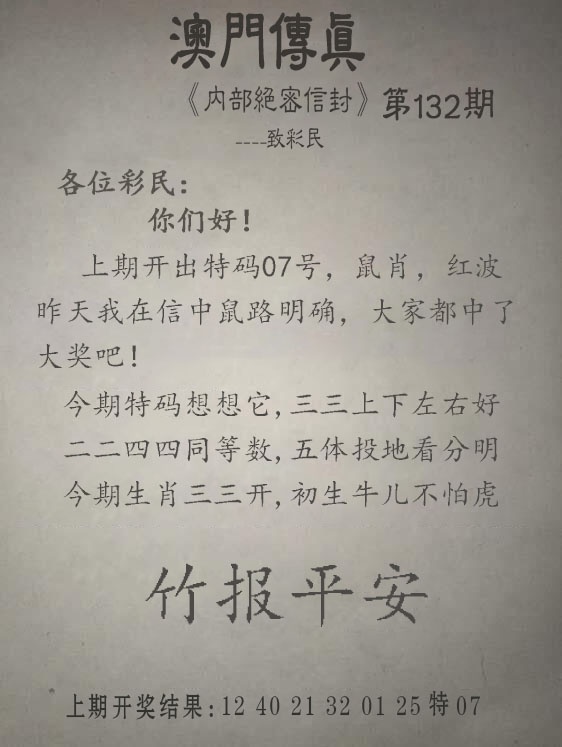 澳門傳眞
《内部絕密信封》第132期
----致彩民
各位彩民：
你们好！
上期开出特码07号，鼠肖，红波
昨天我在信中鼠路明确，大家都中了
大奖吧！
今期特码想想它,三三上下左右好
二二四四同等数,五体投地看分明
今期生肖三三开,初生牛儿不怕虎
竹报平安
上期开奖结果:12 40 21 32 01 25 特 07